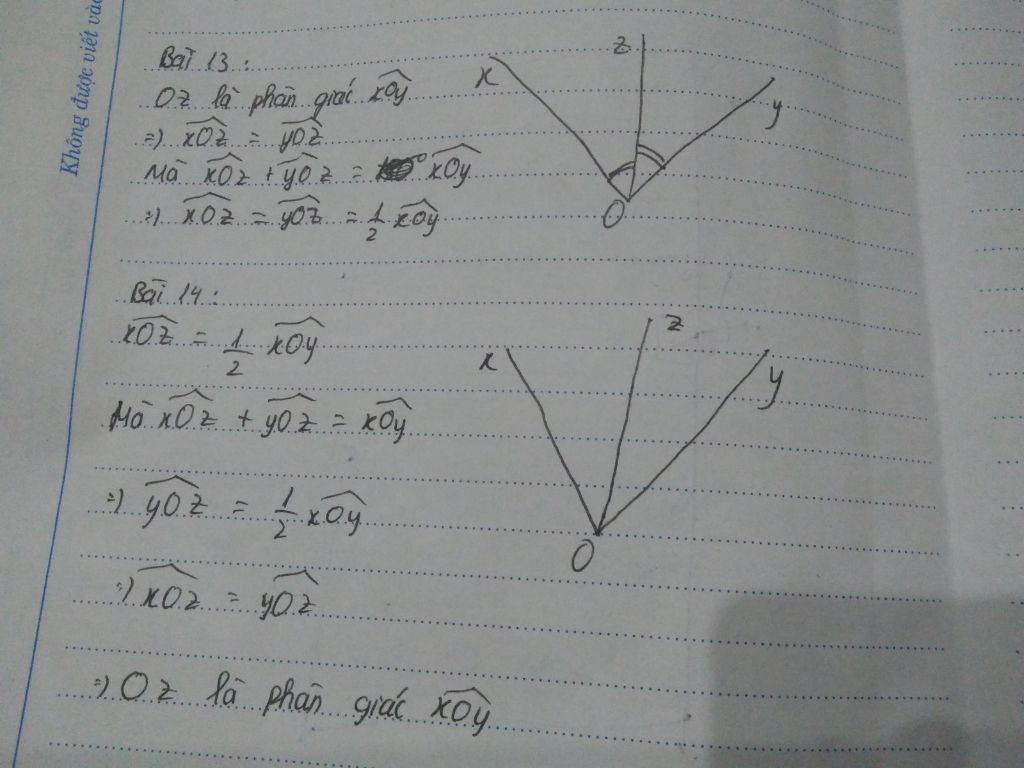 Không được viết vào
Bài 13 :
Oz là phân giác xOy
=> xOz = yOz
Mà xOz + yOz = xOy
=> xOz = yOz = 1/2 xOy
x
z
y
O
Bài 14 :
xOz = 1/2 xOy
Mà xOz + yOz = xOy
=> yOz = 1/2 xOy
=> xOz = yOz
=> Oz là phân giác xOy
x
z
y
O